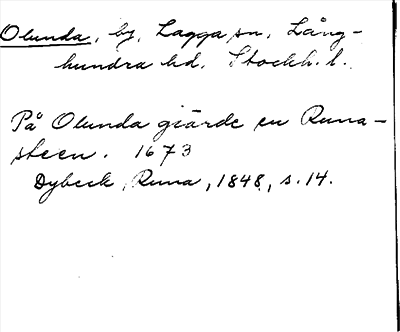 Olunda, by, Lagga sn, Lång-
hundra hd. Stockh. l.
På Olunda giärde en Runa-
steen. 1673
Dybeck, Runa, 1848, s. 14.